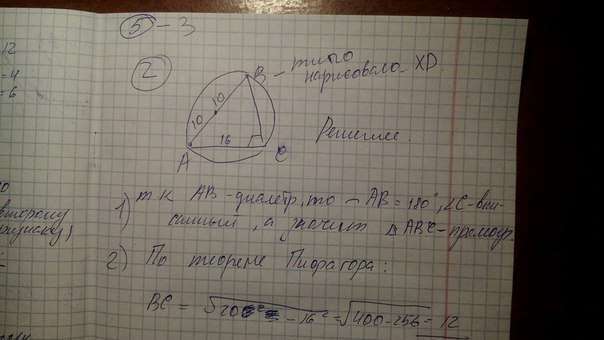 12
=4
=6
5 - 3
2
B - типо
нарисовала XD
10
10
16
A
C
Решение.
1) т.к AB - диаметр, то ◡AB = 180°, ∠C - впи-
санный, а значит △ABC - прямоуг.
второму
2) По теореме Пифагора:
BC = √20² - 16² = √400 - 256 = 12